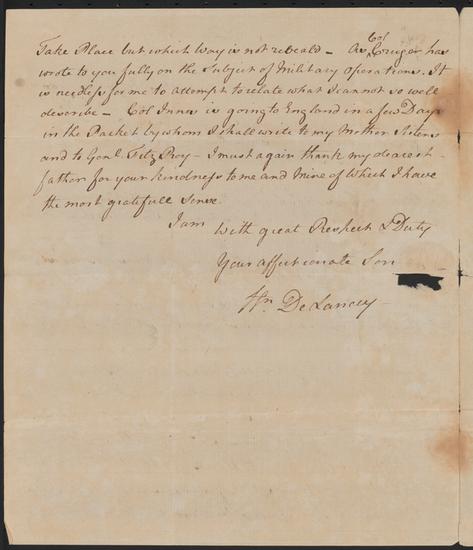 Take Place but which Way is not reveald – As Col Cruger has
wrote to you fully on the Subject of Military Operations. It
is needless for me to attempt to relate what I cannot so well
describe – Col Innes is going to England in a few Days
in the Packet by whom I shall write to my Mother Sisters
and to Genl. Fitz Roy – I must again thank my dearest
father for your kindness to me and mine of Which I have
the most gratefull Sense
I am With great Respect & Duty
Your affectionate Son
De Lancey